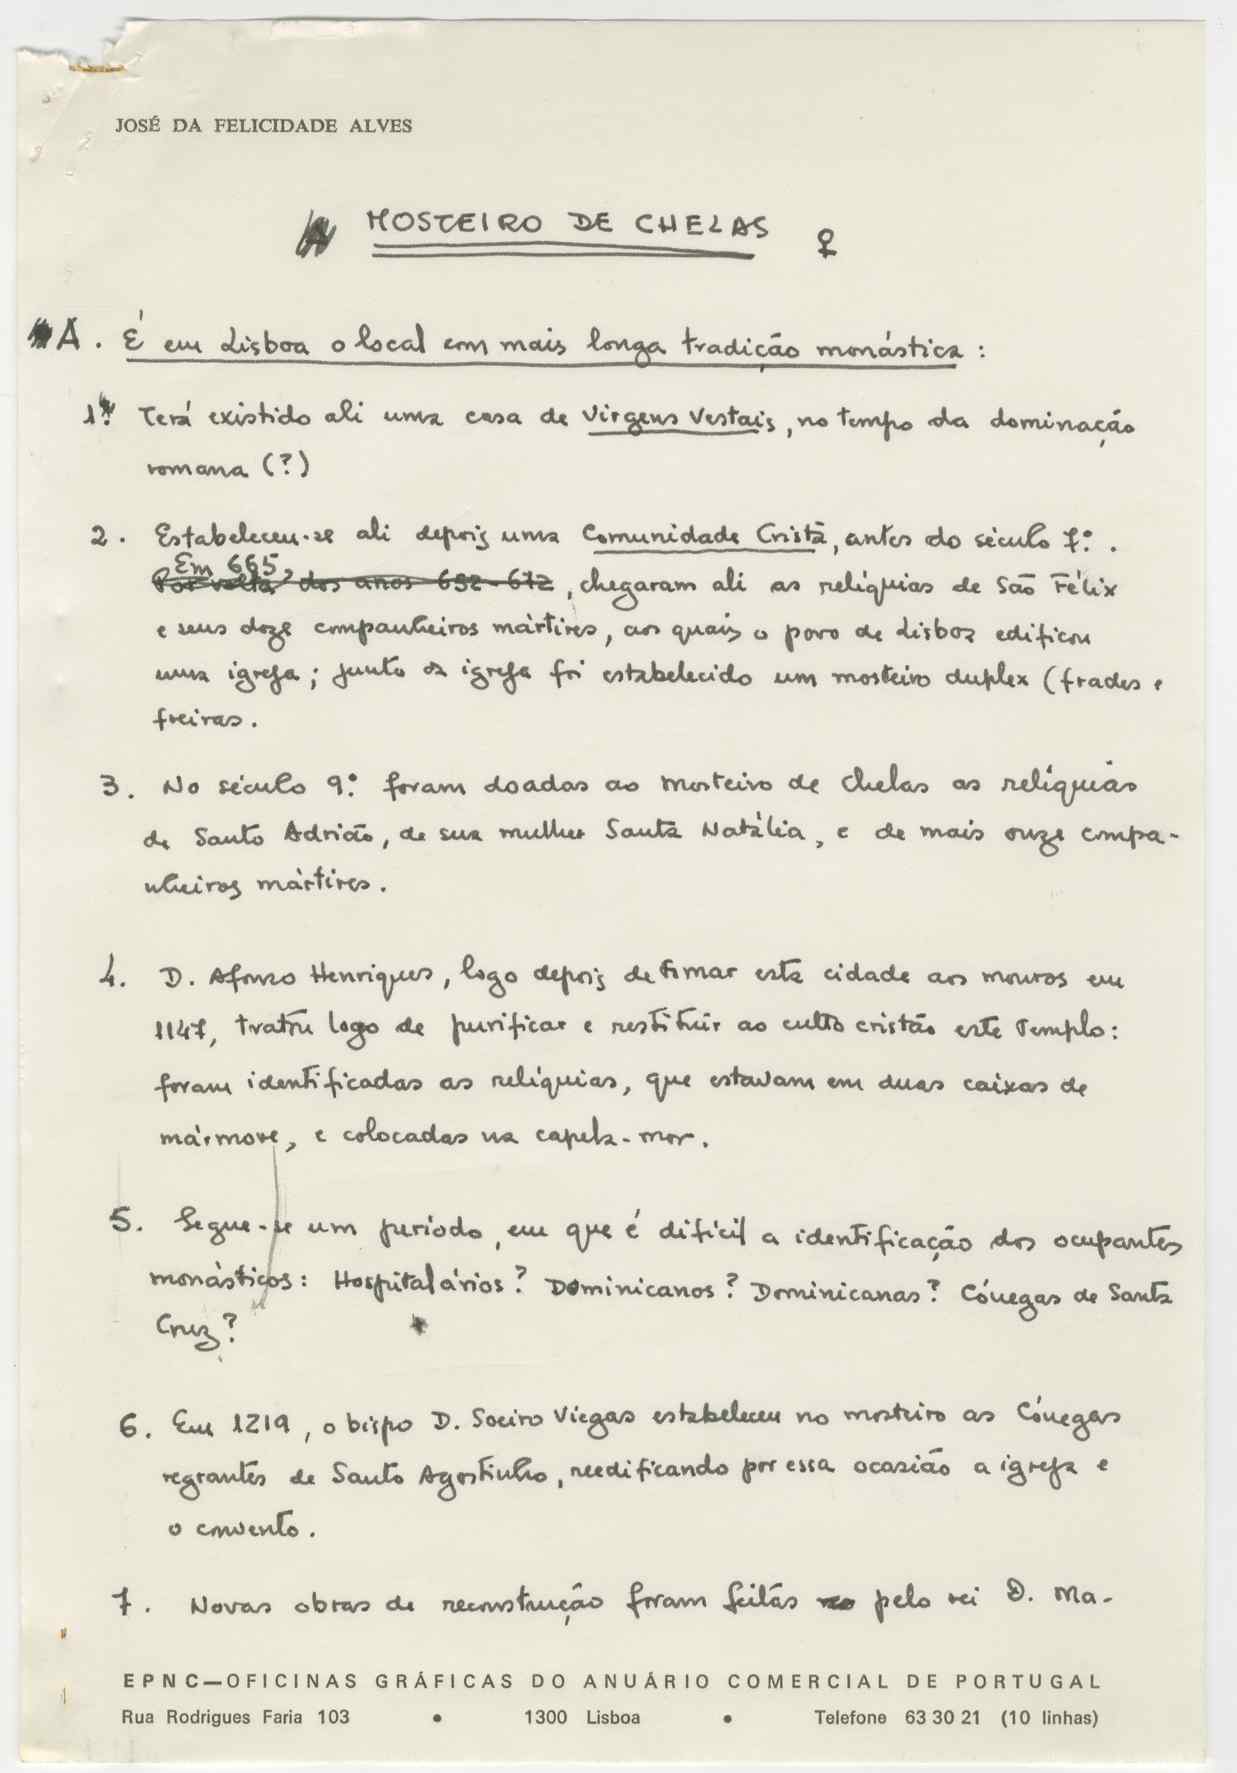 JOSÉ DA FELICIDADE ALVES
MOSTEIRO DE CHELAS ♀
A. É em Lisboa o local com mais longa tradição monástica:
1. Terá existido ali uma casa de Virgens Vestais, no tempo da dominação
romana (?)
2. Estabeleceu-se ali depois uma Comunidade Cristã, antes do século 7º.
Em 665,
Por volta dos anos 652-672, chegaram ali as relíquias de São Félix
e seus doze companheiros mártires, aos quais o povo de Lisboa edificou
uma igreja; junto da igreja foi estabelecido um mosteiro duplex (frades e
freiras.
3. No século 9º foram doadas ao mosteiro de Chelas as relíquias
de Santo Adrião, de sua mulher Santa Natália, e de mais onze compa-
nheiros mártires.
4. D. Afonso Henriques, logo depois de tomar esta cidade aos mouros em
1147, tratou logo de purificar e restituir ao culto cristão este Templo:
foram identificadas as relíquias, que estavam em duas caixas de
mármore, e colocadas na capela-mor.
5. Segue-se um período, em que é difícil a identificação dos ocupantes
monásticos: Hospitalários? Dominicanos? Dominicanas? Cónegas de Santa
Cruz?
6. Em 1219, o bispo D. Soeiro Viegas estabeleceu no mosteiro as Cónegas
regrantes de Santo Agostinho, reedificando por essa ocasião a igreja e
o convento.
7. Novas obras de reconstrução foram feitas pelo rei D. Ma-
EPNC—OFICINAS GRÁFICAS DO ANUÁRIO COMERCIAL DE PORTUGAL
Rua Rodrigues Faria 103 • 1300 Lisboa • Telefone 63 30 21 (10 linhas)